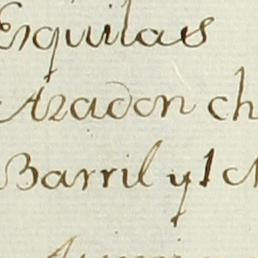 Esquilas
Aradon ch
Barril y 1 c